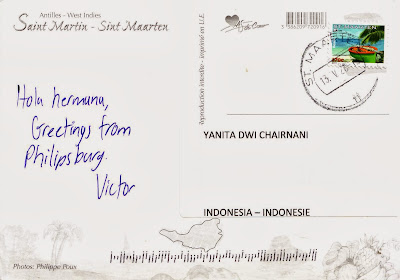 Antilles - West Indies
Saint Martin - Sint Maarten
Hola hermana,
Greetings from
Philipsburg.
Victor
Photos: Philippe Poux
Reproduction interdite - imprimé en U.E.
YANITA DWI CHAIRNANI
INDONESIA – INDONESIE